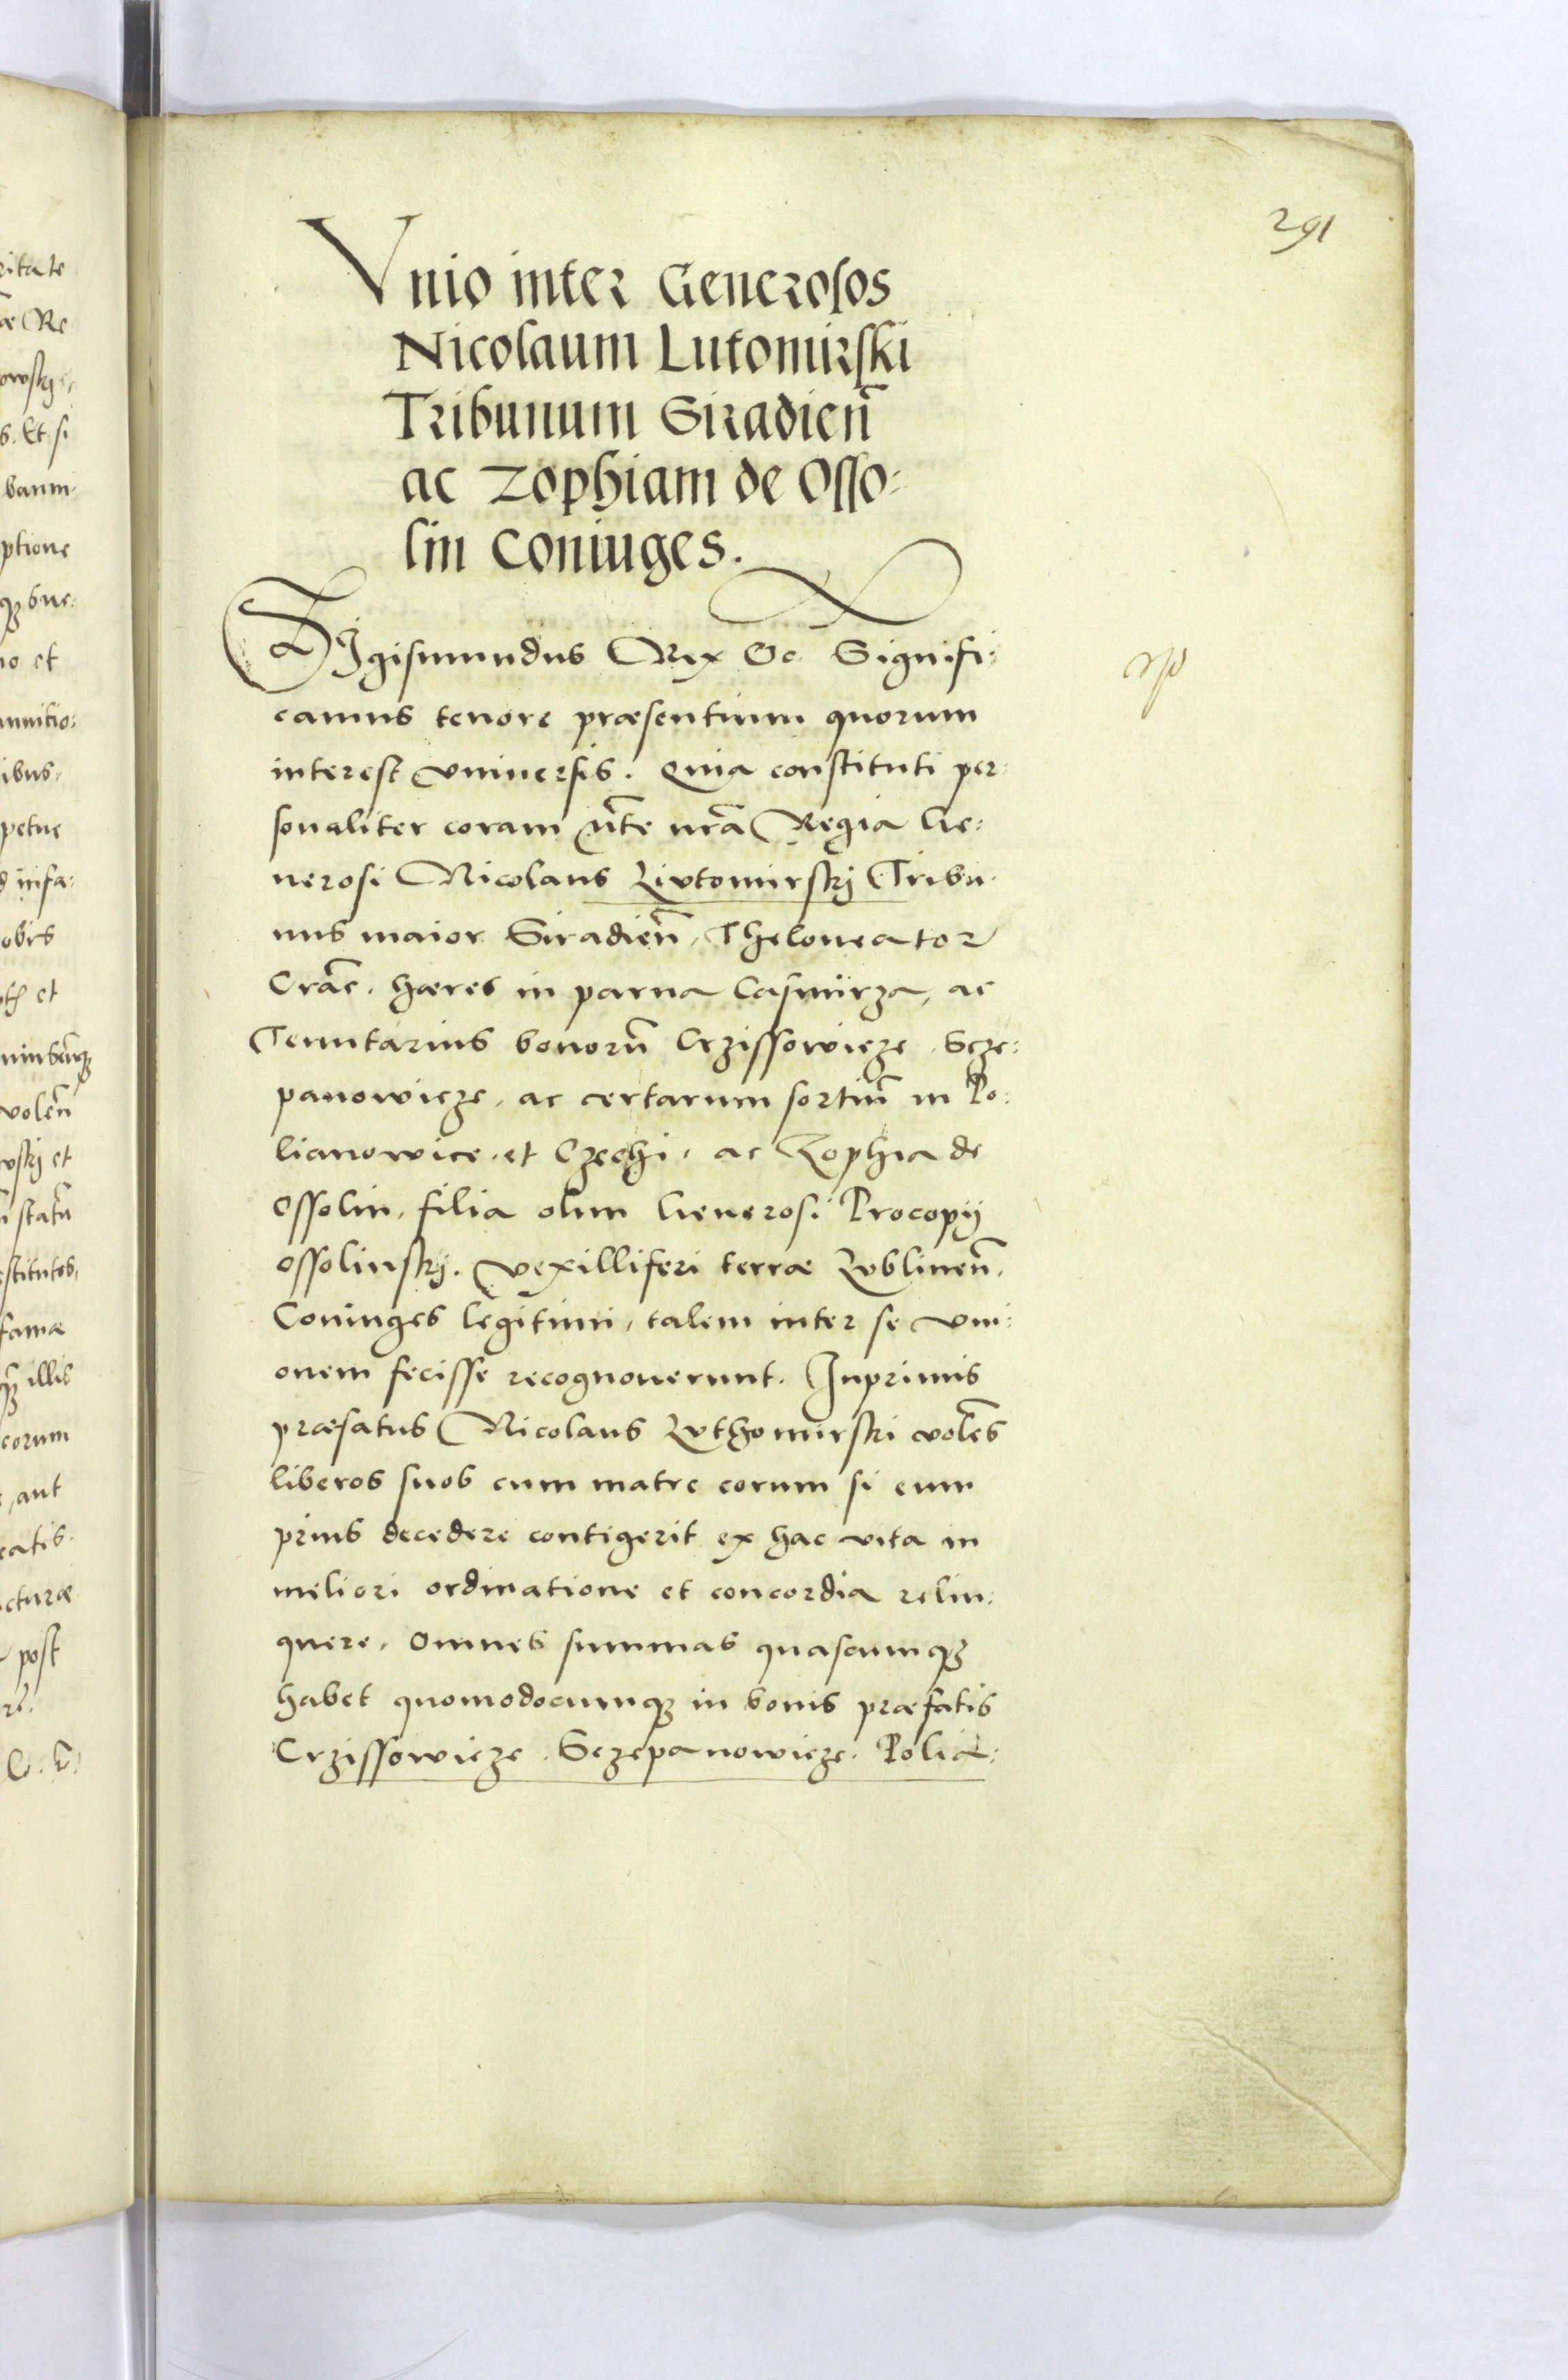 291
Vnio inter Generosos
Nicolaum Lutomirski
Tribunum Siradien̄
ac Zophiam de Osso:
lin Coniuges.
Sigismundus Rex &c. Signifi:
camus tenore præsentium quorum
interest vniuersis. Quia constituti per:
sonaliter coram nr̄a Regia Ge:
nerosi Nicolaus Lvtomirskij Tribu
nus maior Siradien̄, Theloneator
Crac̄. hæres in parua Casmirza, ac
Tenutarius bonorū Crzissowicze, Scze:
panowicze, ac certarum sortiū in Po:
lianowice, et Czechi, ac Zophia de
Ossolin, filia olim Generosi Procopij
Ossolinskij. Vexilliferi terræ Lvblinen̄,
Coniuges legitimi, talem inter se vni:
onem fecisse recognouerunt. Inprimis
præfatus Nicolaus Lvthomirski volēs
liberos suos cum matre eorum si eum
prius decedere contigerit ex hac vita in
meliori ordinatione et concordia relin:
quere, omnes summas quascumqȝ
habet quomodocumqȝ in bonis præfatis
Crzissowicze. Sczepanowicze. Polia:
ritate
æ Re
owskij
s. Et si
ptione
io et
ibus,
petue
infa:
obis
et
volen̄
wskij et
statū
stitutos,
famæ
illis
eorum
aut
eatis.
cturæ
post